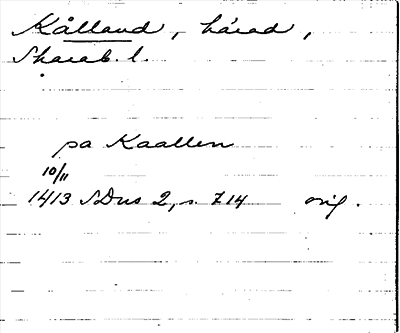 Kålland, härad,
Skarab. l.
pa Kaallen
10/11
1413 SDns 2, s. 714 orig.